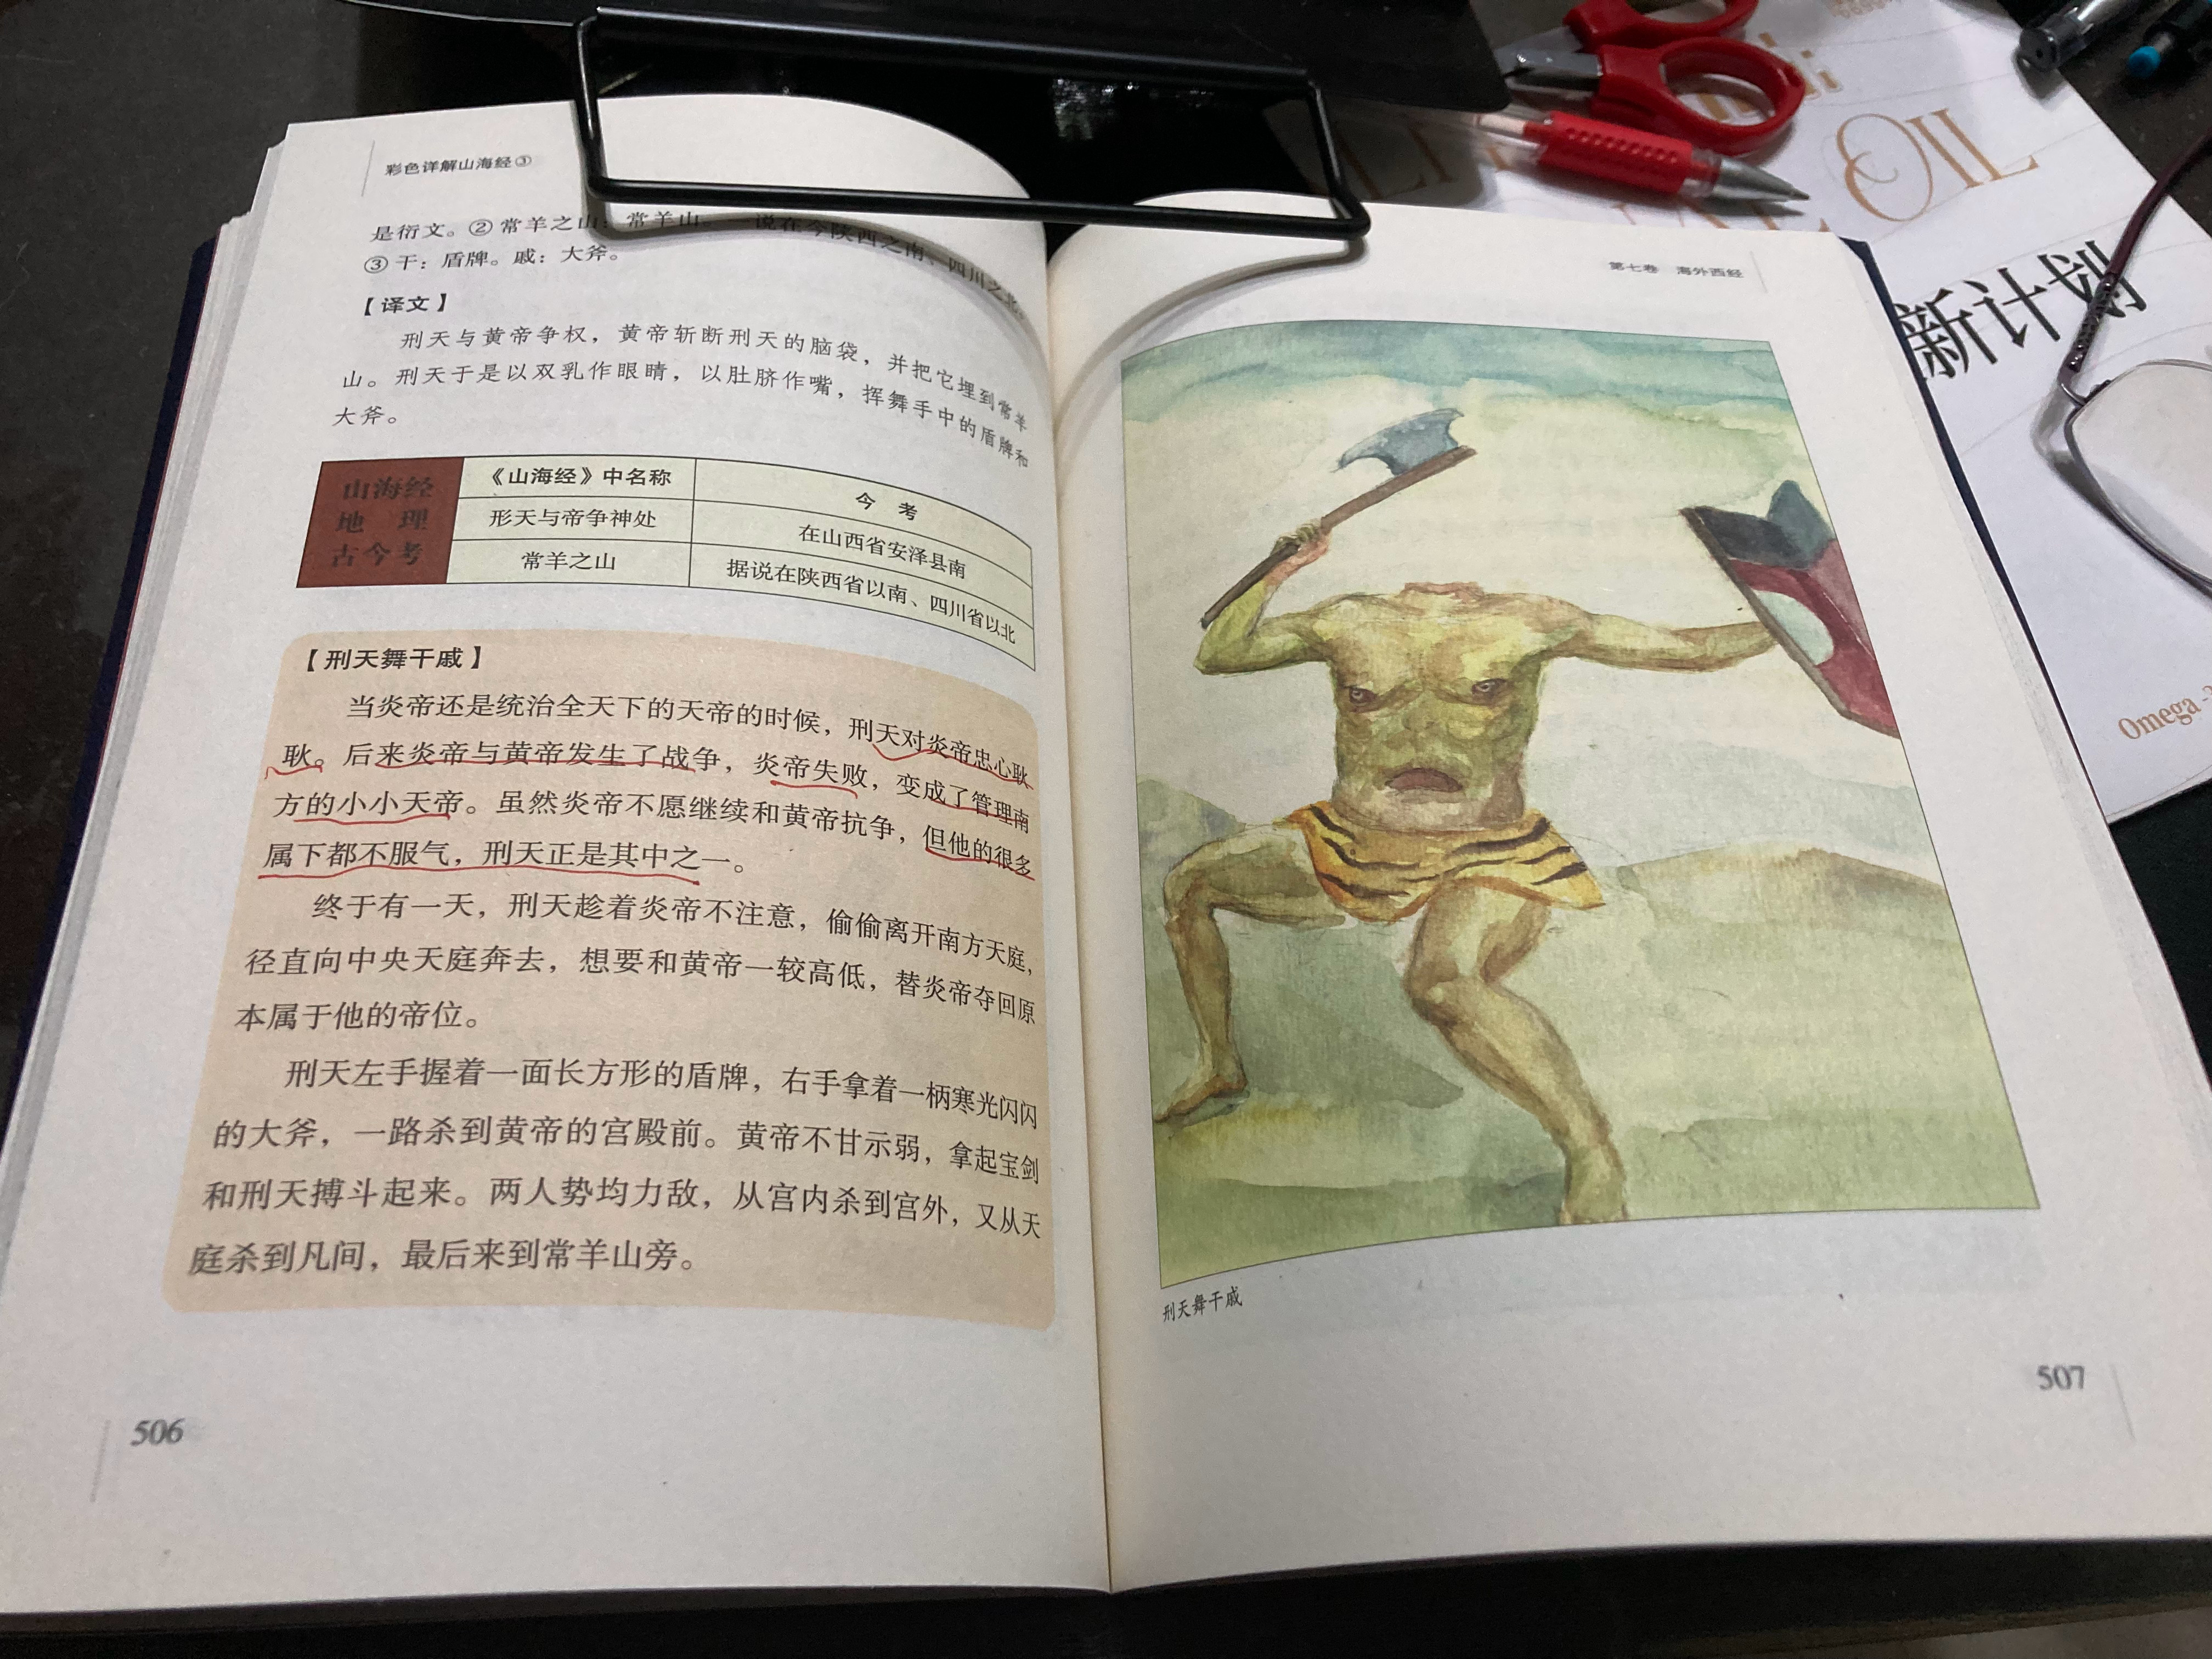 彩色详解山海经③
是衍文。②常羊之山：常羊山。一说在今陕西之南、四川之北。
③干：盾牌。戚：大斧。
【译文】
刑天与黄帝争权，黄帝斩断刑天的脑袋，并把它埋到常羊
山。刑天于是以双乳作眼睛，以肚脐作嘴，挥舞手中的盾牌和
大斧。
山海经
地 理
古今考
《山海经》中名称
今 考
形天与帝争神处
在山西省安泽县南
常羊之山
据说在陕西省以南、四川省以北
【刑天舞干戚】
当炎帝还是统治全天下的天帝的时候，刑天对炎帝忠心耿
耿。后来炎帝与黄帝发生了战争，炎帝失败，变成了管理南
方的小小天帝。虽然炎帝不愿继续和黄帝抗争，但他的很多
属下都不服气，刑天正是其中之一。
终于有一天，刑天趁着炎帝不注意，偷偷离开南方天庭，
径直向中央天庭奔去，想要和黄帝一较高低，替炎帝夺回原
本属于他的帝位。
刑天左手握着一面长方形的盾牌，右手拿着一柄寒光闪闪
的大斧，一路杀到黄帝的宫殿前。黄帝不甘示弱，拿起宝剑
和刑天搏斗起来。两人势均力敌，从宫内杀到宫外，又从天
庭杀到凡间，最后来到常羊山旁。
506
第七卷 海外西经
刑天舞干戚
507
OIL
新计划
Omega-3